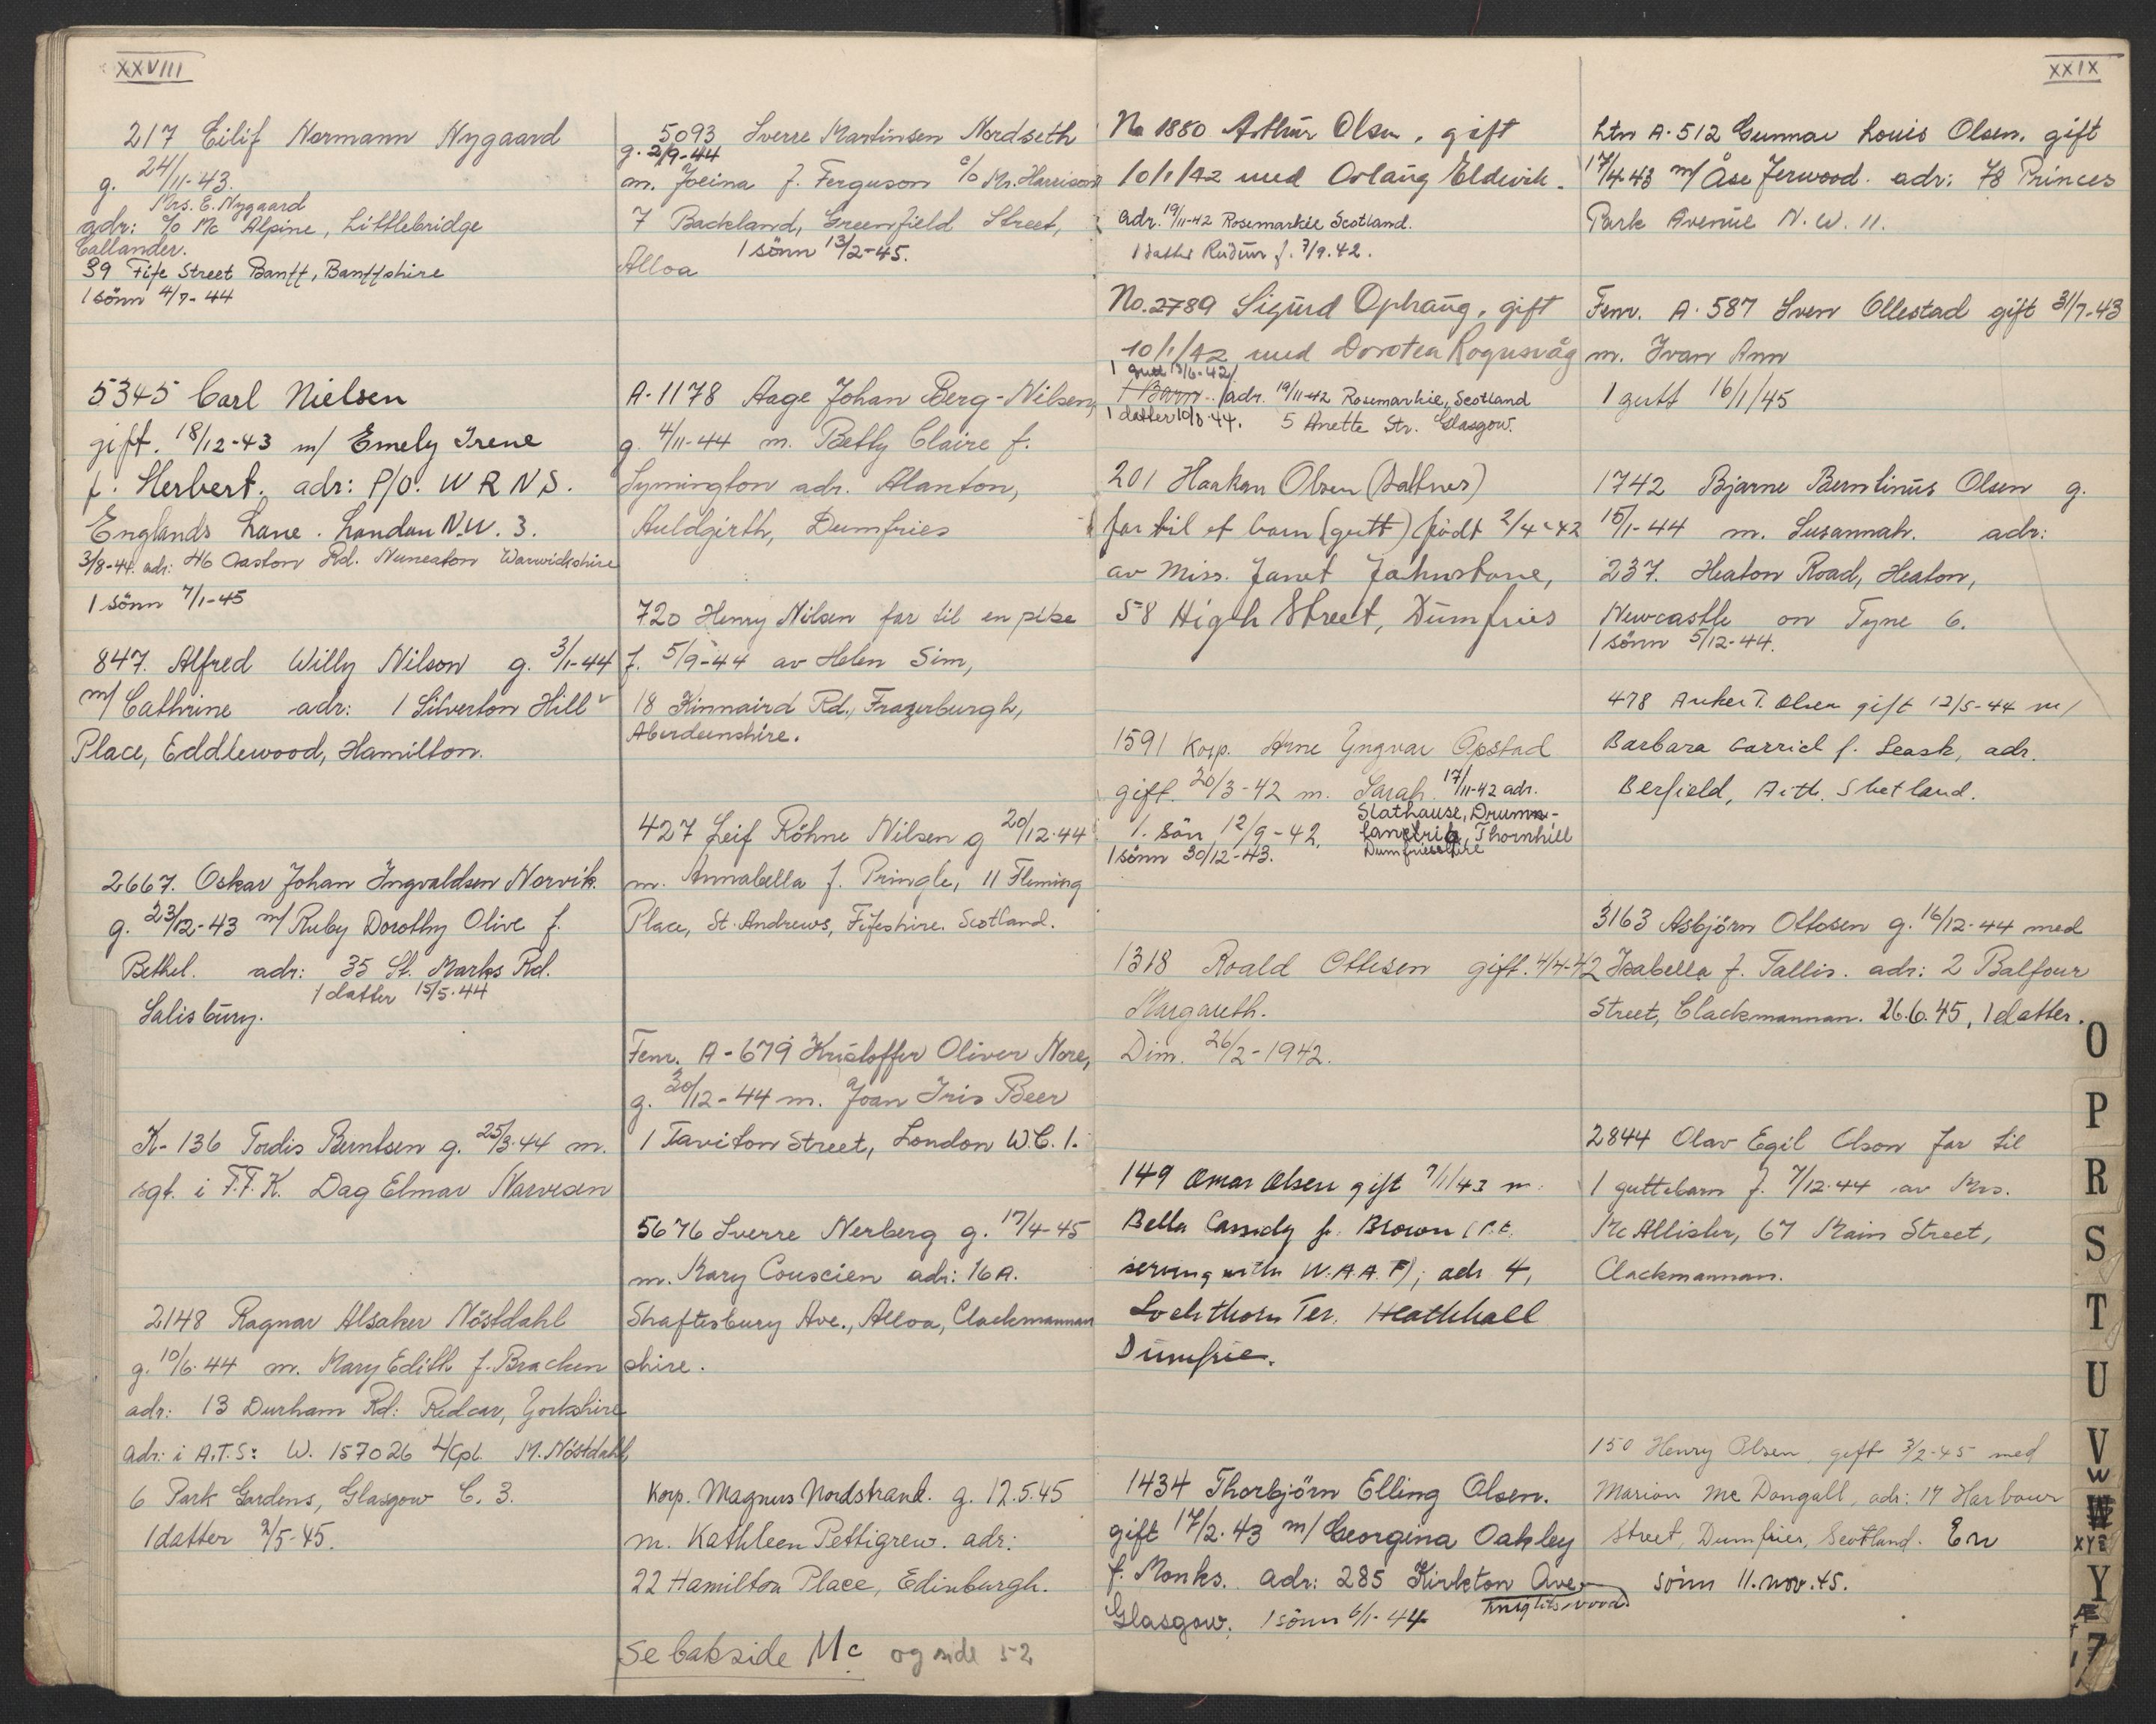 XXVIII
217 Eilif Normann Nygaard
g. 24/11-43.
Mrs. E. Nygaard
adr: c/o Mc Alpine, Littlebridge
Callander.
39 Fife Street Banff, Banffshire
1 sönn 4/7-44
5345 Carl Nielsen
gift. 18/12-43 m/ Emely Irene
f. Herbert. adr: P/O. W R N S.
Englands Lane. London N.W. 3.
3/8-44. adr: 46 Caston Rd. Nuneaton Warwickshire
1 sönn 7/1-45
847. Alfred Willy Nilson g. 3/1-44
m/ Cathrine adr: 1 Silverton Hill
Place, Eddlewood, Hamilton.
2667. Oskar Johan Ingvaldsen Norvik.
g. 23/12-43 m/ Ruby Dorothy Olive f.
Bethel. adr: 35 St. Marks Rd.
1 datter 15/5-44
Salisbury.
K-136 Tordis Berntsen g. 25/3-44 m.
sgt. i F.F.K. Dag Elmar Narvesen
2148 Ragnar Alsaker Nöstdahl
g. 10/6-44 m. Mary Edith f. Bracken
adr: 13 Durham Rd: Redcar, Yorkshire
adr: i A.T.S: W. 157026 L/Cpl. M. Nöstdahl,
6 Park Gardens, Glasgow C. 3.
1 datter 2/5-45.
5093 Sverre Martinsen Nordseth
g. 2/9-44
m. Joeina f. Ferguson c/o Mr. Harrison
7 Backland, Greenfield Street,
1 sönn 13/2-45.
Alloa
A-1178 Aage Johan Berg-Nilsen,
g. 4/11-44 m. Betty Claire f.
Symington adr. Alanton,
Auldgirth, Dumfries
720 Henry Nilsen far til en pike
f. 5/9-44 av Helen Sim,
18 Kinnaird Rd., Frazerburgh,
Aberdeenshire.
427 Leif Röhne Nilsen g 20/12-44
m. Annabella f. Pringle, 11 Fleming
Place, St. Andrews, Fifeshire. Scotland.
Fenr. A-679 Kristoffer Oliver Nore,
g. 30/12-44 m. Joan Iris Beer
1 Taviton Street, London W.C. 1.
5676 Sverre Nerberg g. 17/4-45
m. Mary Couscien adr: 16A.
Shaftesbury Ave., Alloa, Clackmannan
shire.
Korp. Magnus Nordstrand. g. 12.5.45
m. Kathleen Pettigrew. adr:
22 Hamilton Place, Edinburgh.
Se bakside Mc og side 52
XXIX
No 1880 Arthur Olsen, gift
10/1/42 med Aslaug Eldevik.
adr. 19/11-42 Rosemarkie Scotland.
1 datter f. 7/9.42.
No. 2789 Sigurd Ophaug, gift
10/1/42 med Dorotea Rognsvåg
1 gutt 13/6-42/
1 Barn. adr. 19/11-42 Rosemarkie, Scotland
1 datter 10/8-44. 5 Anette Str. Glasgow.
201 Haakon Olsen (Saltnes)
far til et barn (gutt) födt 2/4-42
av Miss. Janet Johnstone,
58 High Street, Dumfries
1591 Korp. Arne Yngvar Opstad
gift. 20/3-42 m. Sarah. 17/11-42 adr.
Slathouse, Drum-
1. sön 12/9-42. lanrig, Thornhill
1 sönn 30/12-43. Dumfriesshire
1318 Roald Ottesen gift. 4/4-42
Margareth.
Dim. 26/2-1942.
149 Omar Olsen gift 7/1/43 m.
Bella Cassidy f. Brown (P.t.
serving with W.A.A.F), adr 4,
Lochthorn Ter. Heathhall
Dumfrie.
1434 Thorbjörn Elling Olsen.
gift 17/2-43 m/ Georgina Oakley
f. Monks. adr: 285 Kirkton Ave.
Knightswood
Glasgow. 1 sönn 6/1-44
Ltn A-512 Gunnar Louis Olsen. gift
17/4-43 m/ Åse Jerwood. adr: 78 Princes
Park Avenue N.W. 11.
Fenr. A-587 Sven Ollestad gift 31/7-43
m. Ivan Ann
1 gutt 16/1/45
1742 Bjarne Berntinus Olsen g.
15/1-44 m. Susannah. adr:
237. Heaton Road, Heaton,
Newcastle on Tyne 6.
1 sönn 5/12-44.
478 Anker T. Olsen gift 12/5-44 m/
Barbara Carrick f. Leask, adr.
Berfield, Aith. Shetland.
3163 Asbjörn Ottosen g. 16/12-44 med
Isabella f. Tallis. adr: 2 Balfour
Street, Clackmannan. 26.6.45, 1 datter.
2844 Olav Egil Olson far til
1 guttebarn f. 7/12-44 av Mrs.
McAllister, 67 Main Street,
Clackmannan.
150 Henry Olsen, gift 3/2-45 med
Marion Mc Dongall, adr: 17 Harbour
Street, Dumfries, Scotland. En
sönn 11. nov. 45.
O
P
R
S
T
U
V
W
W
XYZ
Y
Æ